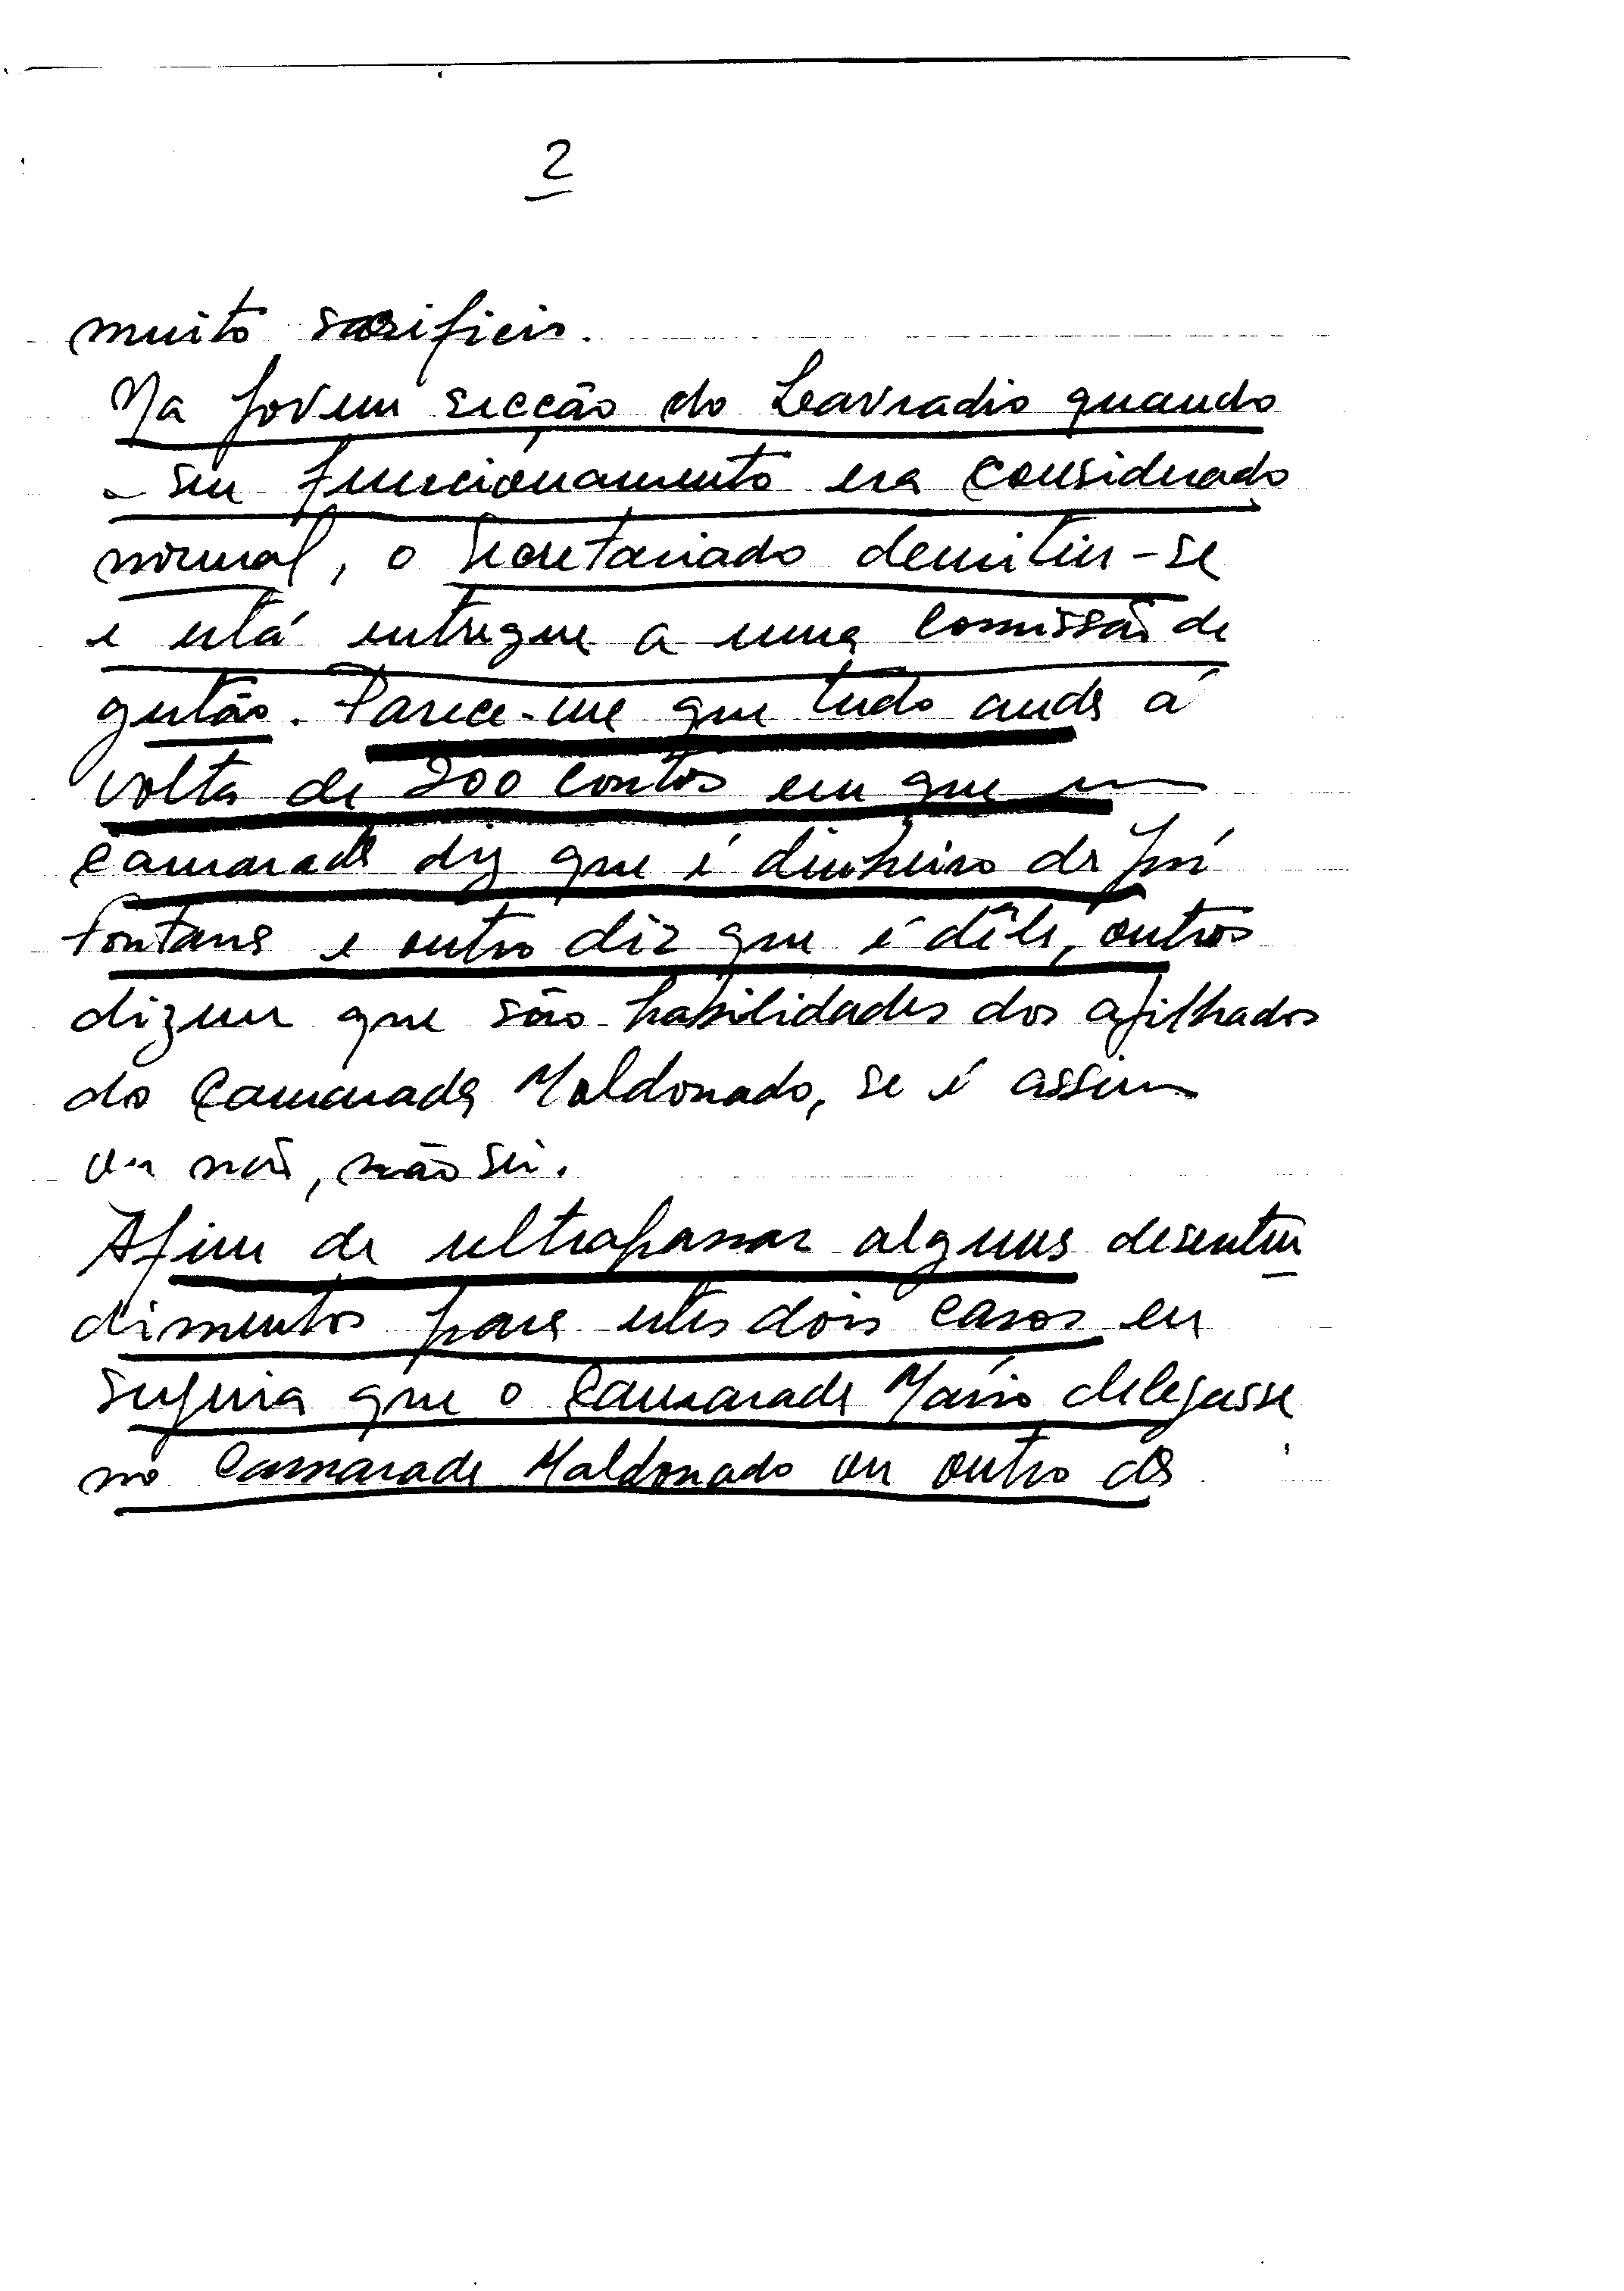 2
muito sacrificio.
Na jovem secção do Lavradio quando
o seu funcionamento era considerado
normal, o Secretariado demitiu-se
e está entregue a uma Comissão de
gestão. Parece-me que tudo anda á
volta de 200 contos em que um
Camarada diz que é dinheiro da
Fontana e outro diz que é dêle, outros
dizem que são habilidades dos afilhados
do Camarada Maldonado, se é assim
ou não, não sei.
Afim de ultrapassar alguns desenten
dimentos para estes dois casos eu
sugeria que o Camarada Mário delegasse
no Camarada Maldonado ou outro da